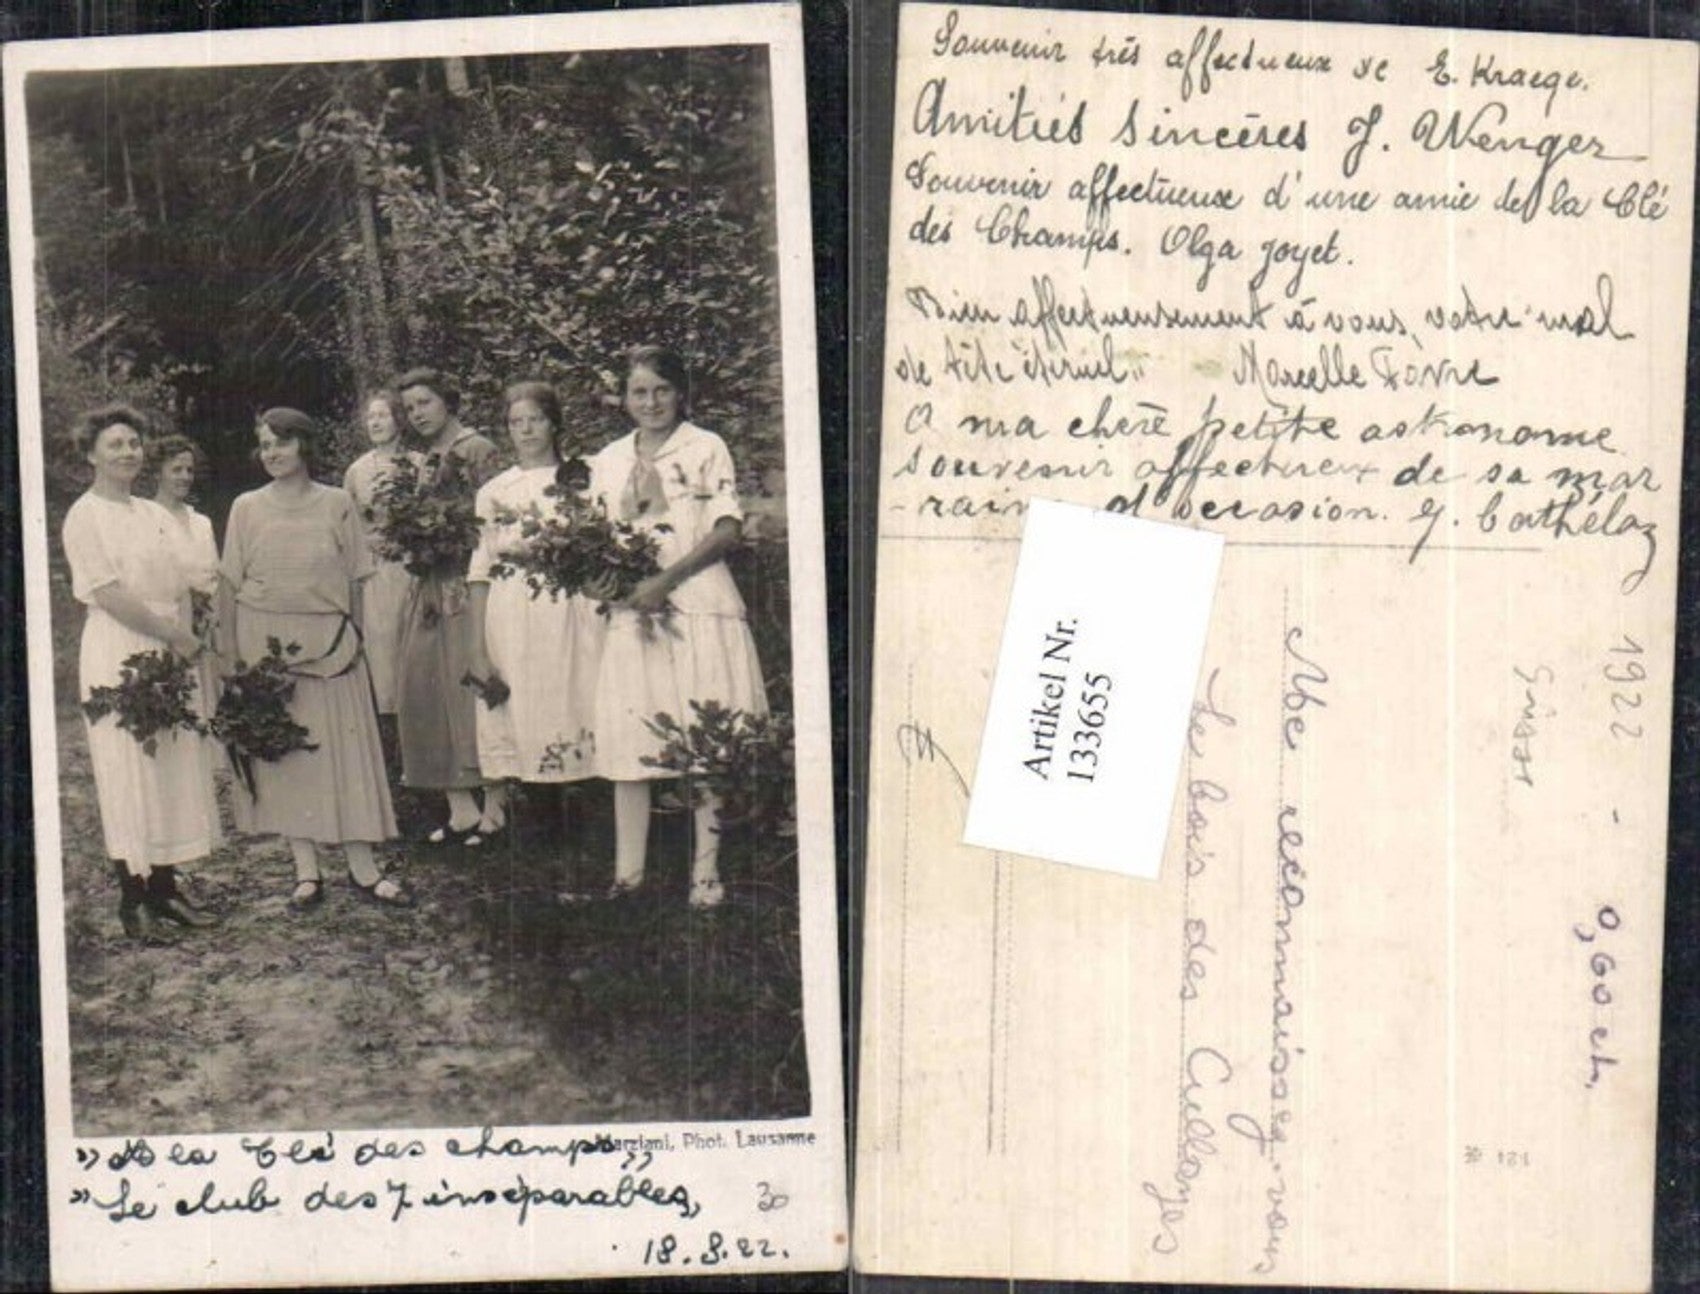 Marziani, Phot. Lausanne
„A la Clé des champs„
„Le club des 7 inséparables„
30
18.8.22.
Souvenir très affectueux de E. Kraege.
Amitiés sincères J. Wenger
Souvenir affectueux d'une amie de la Clé
des Champs. Olga Joyet.
Bien affectueusement à vous, votre "mal
de tête éternel„ Marcelle Favre
A ma chère petite astronome
souvenir affectueux de sa mar
-raine d'occasion. J. Cathélaz
Artikel Nr.
133655
Le bois des Cullayes
Me reconnaissez-vous
1922 - 0,60 ct.
121